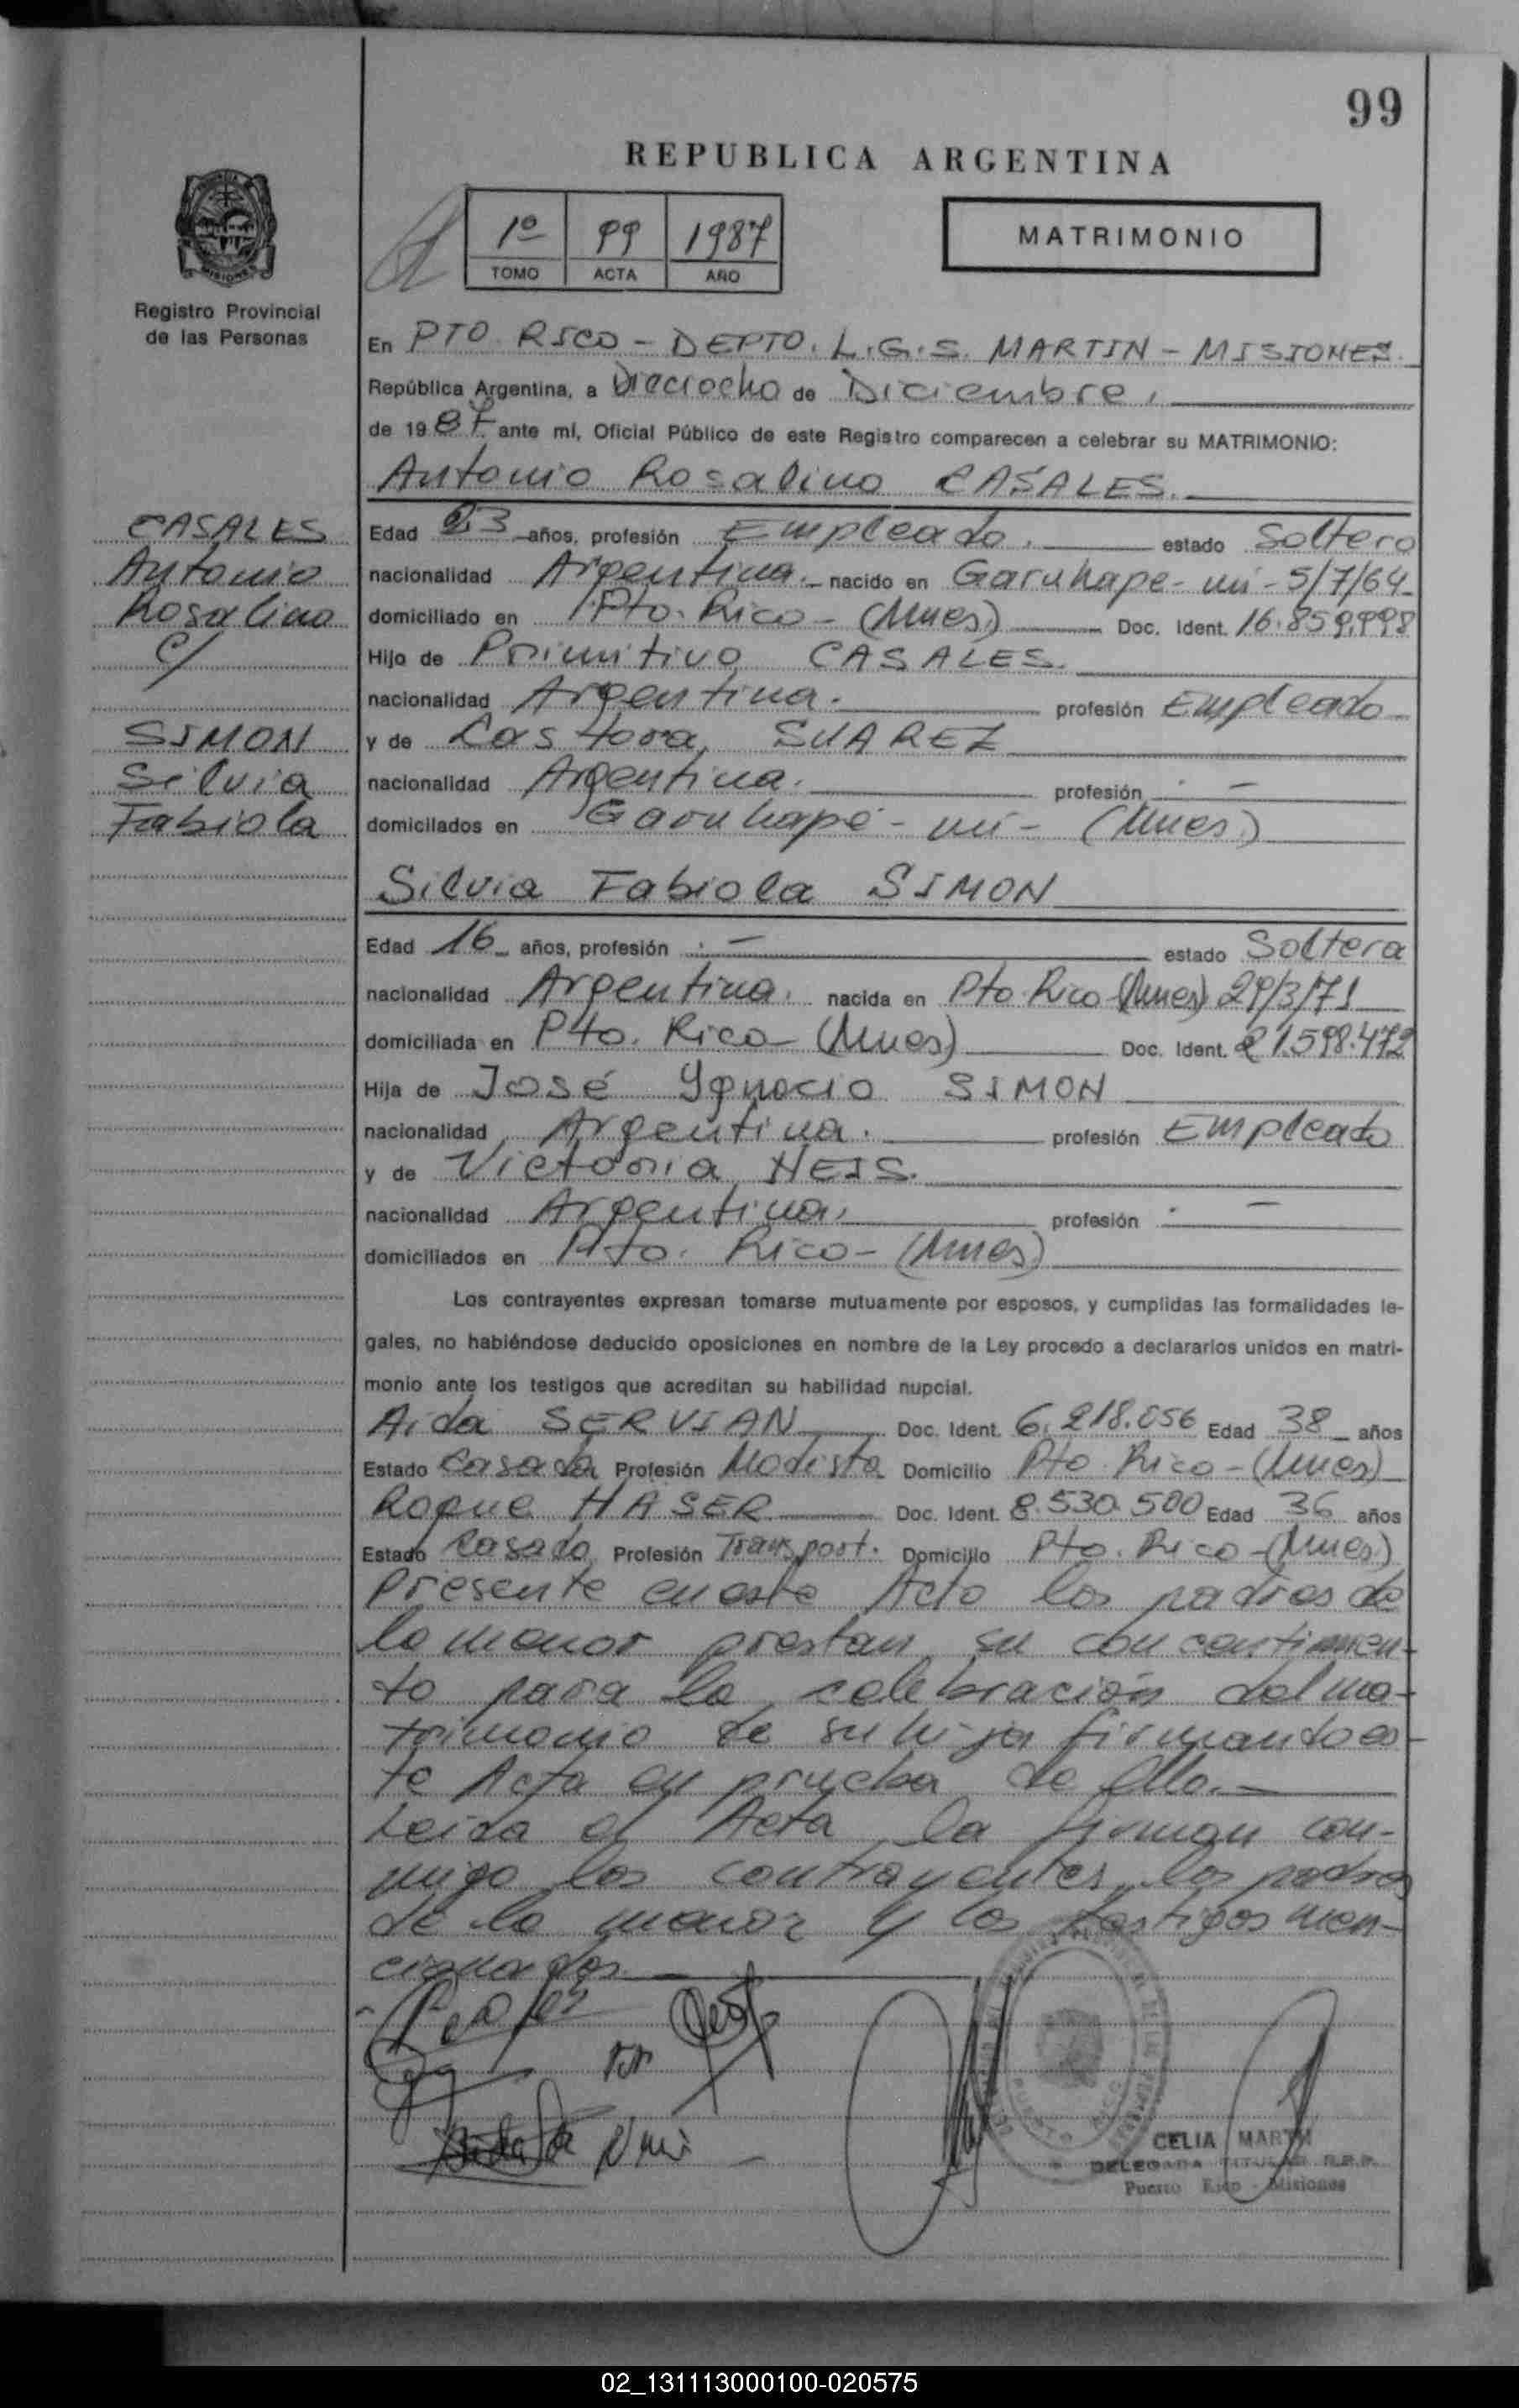 99
REPUBLICA ARGENTINA
1º 99 1987
TOMO ACTA AÑO
MATRIMONIO
Registro Provincial
de las Personas
En PTO. RICO - DEPTO. L.G.S. MARTIN - MISIONES.
República Argentina, a Dieciocho de Diciembre,
de 1987 ante mí, Oficial Público de este Registro comparecen a celebrar su MATRIMONIO:
Antonio Rosalino CASALES.
CASALES
Antonio
Rosalino
c/
SIMON
Silvia
Fabiola
Edad 23 años, profesión Empleado. estado Soltero
nacionalidad Argentina. nacido en Garuhape-mi-5/7/64
domiciliado en Pto. Rico - (Mnes) Doc. Ident. 16.859.998
Hijo de Primitivo CASALES.
nacionalidad Argentina. profesión Empleado
y de Castora SUAREZ
nacionalidad Argentina. profesión . -
domicilados en Garuhapé - mí - (Mnes)
Silvia Fabiola SIMON
Edad 16 años, profesión . - estado Soltera
nacionalidad Argentina. nacida en Pto Rico (Mnes) 29/3/71
domiciliada en Pto. Rico (Mnes) Doc. Ident. 21.598.472
Hija de José Ygnacio SIMON
nacionalidad Argentina. profesión Empleado
y de Victoria NEIS.
nacionalidad Argentina. profesión . -
domiciliados en Pto. Rico - (Mnes)
Los contrayentes expresan tomarse mutuamente por esposos, y cumplidas las formalidades le-
gales, no habiéndose deducido oposiciones en nombre de la Ley procedo a declararlos unidos en matri-
monio ante los testigos que acreditan su habilidad nupcial.
Aida SERVIAN Doc. Ident. 6.218.056 Edad 38 años
Estado Casada Profesión Modista Domicilio Pto. Rico - (Mnes)
Roque HASER Doc. Ident. 8.530.500 Edad 36 años
Estado Casado Profesión Transport. Domicilio Pto. Rico - (Mnes)
Presente en este Acto los padres de
la menor prestan su concentimien-
to para la celebración del ma-
trimonio de su hija firmando es-
te Acta en prueba de ello.
Leida el Acta la firman con-
migo los contrayentes, los padres
de la menor y los testigos men-
cionados.
CELIA MARTA
DELEGADA TITULAR R.P.P.
Puerto Rico - Misiones
02_131113000100-020575